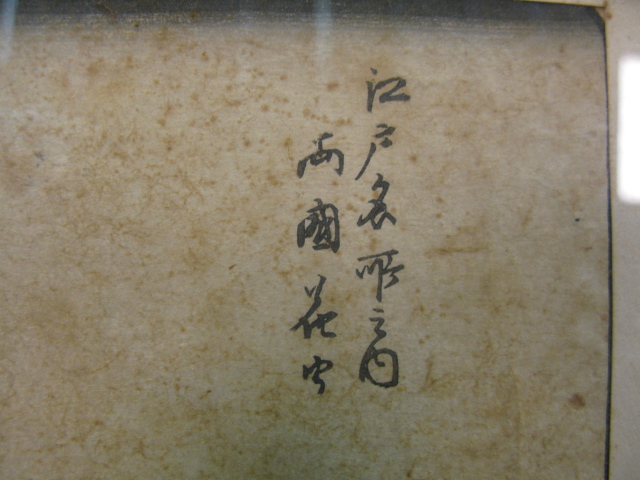 江戸名所之内
両國花火